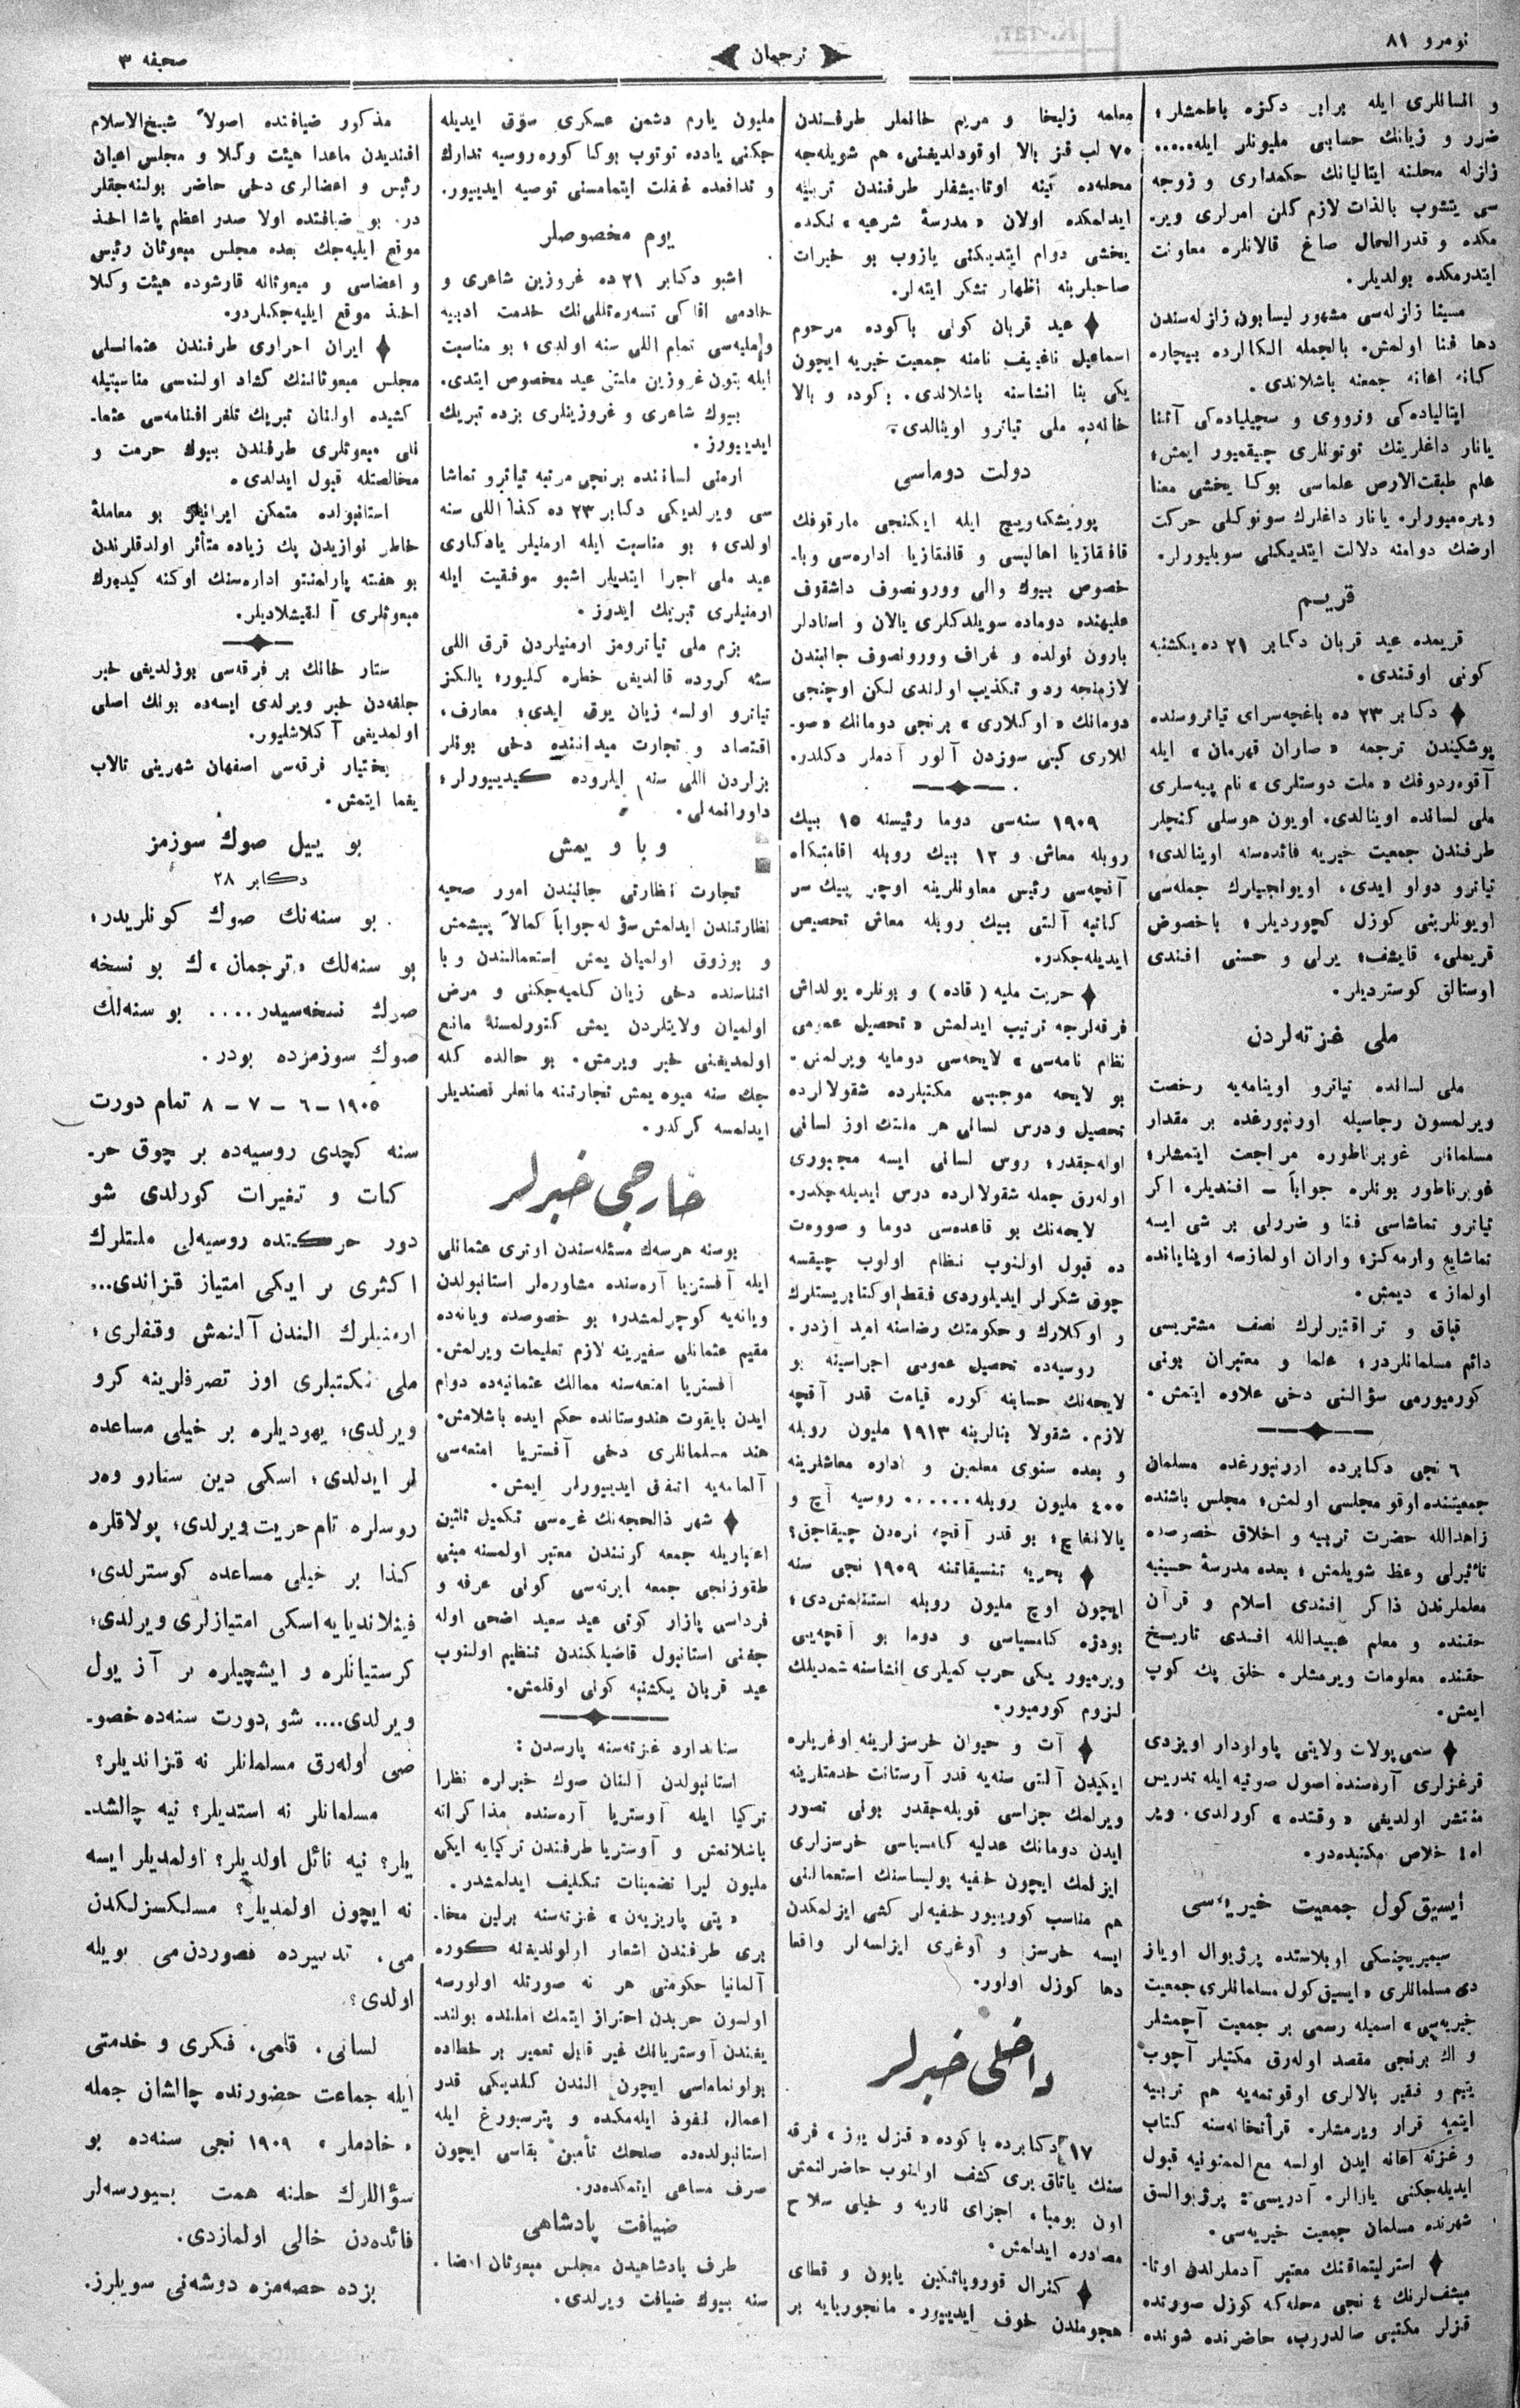 نومرو ٨١
ترجمان
صحيفه ٣
و انسانلرى ايله برابر دكزه باطمشلر؛
ضرر و زيانك حسابى مليونلر ايله.....
زلزله محلنه ايتاليانك حكمدارى و زوجه
سى يتشوب بالذات لازم كلن امرلرى وير-
مكده و قدر الحال صاغ قالانلره معاونت
ايتدرمكده بولديلر.
مسينا زلزله‌سى مشهور ليسابون زلزله‌سندن
دها فنا اولمش. بالجمله الكالرده بيچاره
كانه اعانه جمعنه باشلاندى.
ايتالياده‌كى وزووى و سچيلياده‌كى آتنا
يانار داغلرينك توتونلرى چيقميور ايمش؛
علم طبقت‌الارض علماسى بوكا يخشى معنا
ويره‌ميورلر. يانار داغلرك سونوكلى حركت
ارضك دوامنه دلالت ايتديكنى سويليورلر.
قريم
قريمده عيد قربان دكابر ٢١ ده يكشنبه
كونى اوقندى.
دكابر ٢٣ ده باغچه‌سراى تياتروسنده
پوشكيندن ترجمه «صاران قهرمان» ايله
آقوه‌ردوفك «ملت دوستلرى» نام پيه‌سلرى
ملى لسانده اوينالدى. اويون هوسلى كنجلر
طرفندن جمعيت خيريه فائده‌سنه اوينالدى؛
تياترو دولو ايدى، اويونجيلرك جمله‌سى
اويونلرينى كوزل كچورديلر؛ باخصوص
قريملى، قايشف، يرلى و حسنى افندى
اوستالق كوسترديلر.
ملى غزته‌لردن
ملى لسانده تياترو اوينامه‌يه رخصت
ويرلمسون رجاسيله اورنبورغده بر مقدار
مسلمانلر غوبرناطوره مراجعت ايتمشلر؛
غوبرناطور بونلره جواباً — افنديلره اكر
تياترو تماشاسى فنا و ضررلى بر شى ايسه
تماشايه وارمه‌كز؛ واران اولمازسه اوينايانده
اولماز» ديمش.
قباق و تراقتيرلرك نصف مشتريسى
دائم مسلمانلردر؛ علما و معتبران بونى
كورميورمى سؤالنى دخى علاوه ايتمش.
٦ نجى دكابرده اورنبورغده مسلمان
جمعيتنده اوقو مجلسى اولمش؛ مجلس باشنده
زاهدالله حضرت تربيه و اخلاق خصوصده
تاثيرلى وعظ شويلمش؛ بعده مدرسهٔ حسينيه
معلملرندن ذاكر افندى اسلام و قرآن
حقنده و معلم عبيدالله افندى تاريخ
حقنده معلومات ويرمشلر. خلق پك كوپ
ايمش.
سمى پولات ولايتى پاولودار اويزدى
قرغزلرى آره‌سنده اصول صوتيه ايله تدريس
منتشر اولديغى «وقتده» كورلدى.
خلاص مكتبده‌در.
ايسيق كول جمعيت خيريه‌سى
سيميريچنسكى اوبلاستده پرژيوال اوياز
دى مسلمانلرى «ايسيق كول مسلمانلرى جمعيت
خيريه‌سى» اسميله رسمى بر جمعيت آچمشلر
و اك برنجى مقصد اوله‌رق مكتبلر آچوب
يتيم و فقير بالالرى اوقوتمه‌يه هم تربيه
ايتميه قرار ويرمشلر. قرأتخانه‌سنه كتاب
و غزته اعانه ايدن اولسه مع‌الممنونيه قبول
ايديله‌جكنى يازالر. آدريسى: پرژيوالسق
شهرنده مسلمان جمعيت خيريه‌سى.
استرليتماقنك معتبر آدملرندن اوتا-
ميشف‌لرنك ٤ نجى محله‌كه كوزل صوورتده
قزلر مكتبى صالدروب، حاضرنده شونده
معلمه زليخا و مريم خانملر طرفندن
٧٠ لب قنز بالا اوقودلديغنى، هم شويله‌جه
محله‌ده ينه اوتاميشفلر طرفندن تربيه
ايدلمكده اولان «مدرسهٔ شرعيه» نكده
يخشى دوام ايتديكنى يازوب بو خيرات
صاحبلرينه اظهار تشكر ايته‌لر.
عيد قربان كونى باكوده مرحوم
اسماعيل ناغييف نامنه جمعيت خيريه ايچون
يكى بنا انشاسنه باشلاندى. باكوده و بالا
خانه‌ده ملى تياترو اوينالدى.
دولت دوماسى
پوريشكه‌ويچ ايله ايكنجى مارقوفك
قافقازيا اهاليسى و قافقازيا اداره‌سى وبا-
خصوص بيوك والى وورونصوف داشقوف
عليهنده دوماده سويلدكلرى يالان و اسنادلر
بارون نولده و غراف وورونصوف جانبندن
لازمنجه رد و تكذيب اولندى لكن اوچنجى
دومانك «اوكلارى» برنجى دومانك «صو-
للارى كبى سوزدن آلور آدملر دكلدر.
١٩٠٩ سنه‌سى دوما رئيسنه ١٥ بيك
روبله معاش و ١٢ بيك روبله اقامتكاه
آقچه‌سى رئيس معاونلرينه اوچر بيك سر
كاتبه آلتى بيك روبله معاش تخصيص
ايديله‌جكدر.
حريت مليه (قاده) و بونلره يولداش
فرقه‌لرجه ترتيب ايدلمش «تحصيل عمومى
نظام نامه‌سى» لايحه‌سى دومايه ويرلمش.
بو لايحه موجبجى مكتبلرده شقولالرده
تحصيل و درس لسانى هر ملتك اوز لسانى
اوله‌جقدر؛ روس لسانى ايسه مجبورى
اوله‌رق جمله شقولالرده درس ايديله‌جكدر.
لايحه‌نك بو قاعده‌سى دوما و صووه‌ت
ده قبول اولنوب نظام اولوب چيقسه
چوق شكرلر ايديلوردى فقط اوكتابريستلرك
و اوكلارك و حكومتك رضاسنه اميد ازدر.
روسيه‌ده تحصيل عمومى اجراسينه بو
لايحه‌نك حسابنه كوره قيامت قدر آقچه
لازم. شقولا بنالرينه ١٩١٣ مليون روبله
و بعده سنوى معلمين و اداره معاشلرينه
٤٠٠ مليون روبله...... روسيه آچ و
يالانغاچ؛ بو قدر آقچه نره‌دن چيقاجق؟
بحريه تنسيقاتنه ١٩٠٩ نجى سنه
ايچون اوچ مليون روبله استنلمش‌دى؛
بودژه كاميسياسى و دوما بو آقچه‌يى
ويرميور يكى حرب كميلرى انشاسنه شمديلك
لزوم كورميور.
آت و حيوان خرسزلرينه اوغريلره
ايكيدن آلتى سنه‌يه قدر آرستانت خدمتلرينه
ويرلمك جزاسى قويله‌جقدر بونى تصور
ايدن دومانك عدليه كامسياسى خرسزلرى
ايزلمك ايچون خفيه پوليساسنك استعمالنى
هم مناسب كوريبور خفيه‌لر كشى ايزلمكدن
ايسه خرسز و آوغرى ايزلسه‌لر واقعا
دها كوزل اولور.
داخلى خبرلر
١٧ دكابرده باكوده «قنزل يوز» فرقه
سنك ياتاق يرى كشف اولنوب حاضرلنمش
اون بومبا، اجزاى ناريه و خيلى سلاح
مصادره ايدلمش.
كنرال قوروپاتنكين يابون و قطاى
هجومندن خوف ايدييور. مانجوريايه بر
مليون يارم دشمن عسكرى سوق ايديله
جكنى يادده توتوب بوكا كوره روسيه تدارك
و تدافعده غفلت ايتمامسنى توصيه ايدييور.
يوم مخصوصلر
اشبو دكابر ٢١ ده غروزين شاعرى و
خادمى اقاكى تسه‌ره‌تللى‌نك خدمت ادبيه
و مليه‌سى تمام اللى سنه اولدى؛ بو مناسبت
ايله بتون غروزين ملتى عيد مخصوص ايتدى.
بيوك شاعرى و غروزينلرى بزده تبريك
ايدييورز.
ارمنى لساننده برنجى مرتبه تياترو تماشا
سى ويرلديكى دكابر ٢٣ ده كذا اللى سنه
اولدى؛ بو مناسبت ايله ارمنيلر يادكارى
عيد ملى اجرا ايتديلر اشبو موفقيت ايله
ارمنيلرى تبريك ايدرز.
بزم ملى تياترومز ارمنيلردن قرق اللى
سنه كروده قالديغى خطره كليور؛ يالكز
تياترو اولسه زيان يوق ايدى؛ معارف،
اقتصاد و تجارت ميداننده دخى بونلر
بزلردن اللى سنه ايلروده كيديييورلر؛
داورانمه‌لى.
وبا و يمش
تجارت نظارتى جانبندن امور صحيه
نظارتندن ايدلمش سؤاله جواباً كمالاً پيشمش
و بوزوق اولميان يمش استعمالندن وبا
اثناسنده دخى زيان كلميه‌جكنى و مرض
اولميان ولايتلردن يمش كتورلمسنه مانع
اولمديغنى خبر ويرمش. بو حالده كله
جك سنه ميوه يمش تجارتنه مانعلر قصنديلر
ايدلمسه كركدر.
خارجى خبرلر
بوسنه هرسك مسئله‌سندن اوترى عثمانلى
ايله آفستريا آره‌سنده مشاوره‌لر استانبولدن
ويانه‌يه كوچرلمشدر؛ بو خصوصده ويانه‌ده
مقيم عثمانلى سفيرينه لازم تعليمات ويرلمش.
افستريا امتعه‌سنه ممالك عثمانيه‌ده دوام
ايدن بايقوت هندوستانده حكم ايده باشلامش.
هند مسلمانلرى دخى آفستريا امتعه‌سى
آلمامه‌يه اتفاق ايدييورلر ايمش.
شهر ذالحجه‌نك غره‌سى تكميل ثلثين
اعتباريله جمعه كوننندن معتبر اولمسنه مبنى
طقوزنجى جمعه ايرته‌سى كونى عرفه و
فرداسى پازار كونى عيد سعيد اضحى اوله
جغنى استانبول قاضيلكندن تنظيم اولنوب
عيد قربان يكشنبه كونى اوقلمش.
ستاندارد غزته‌سنه پارسدن:
استانبولدن آلنان صوك خبرلره نظرا
تركيا ايله آوستريا آره‌سنده مذاكراته
باشلانمش و آوستريا طرفندن تركيايه ايكى
مليون ليرا تضمينات تكليف ايدلمشدر.
«پتى پاريزيه‌ن» غزته‌سنه برلين مخا-
برى طرفندن اشعار اولولديغنه كوره
آلمانيا حكومتى هر نه صورتله اولورسه
اولسون حربدن احتراز ايتمك املنده بولند-
يغندن آوستريانك غير قابل تعمير بر خطاده
بولونماماسى ايچون الندن كلديكى قدر
اعمال نفوذ ايله‌مكده و پترسبورغ ايله
استانبولده‌ده صلحك تأمين بقاسى ايچون
صرف مساعى ايتمكده‌در.
ضيافت پادشاهى
طرف پادشاهيدن مجلس مبعوثان اعضا-
سنه بيوك ضيافت ويرلدى.
مذكور ضيافتده اصولاً شيخ‌الاسلام
افنديدن ماعدا هيئت وكلا و مجلس اعيان
رئيس و اعضالرى دخى حاضر بولنه‌جقلر
در. بو ضيافتده اولا صدر اعظم پاشا اخذ
موقع ايليه‌جك بعده مجلس مبعوثان رئيسى
و اعضاسى و مبعوثانه قارشوده هيئت وكلا
اخذ موقع ايليه‌جكلردو.
ايران احرارى طرفندن عثمانلى
مجلس مبعوثاننك كشاد اولنمسى مناسبتيله
كشيده اولنان تبريك تلغرافنامه‌سى عثما-
نلى مبعوثلرى طرفندن بيوك حرمت و
مخالصتله قبول ايدلدى.
استانبولده متمكن ايرانيلر بو معاملهٔ
خاطر نوازيدن پك زياده متأثر اولدقلرندن
بو هفته پارلمنتو اداره‌سنك اوكنه كيدرك
مبعوثلرى آلقيشلاديلر.
ستار خانك بر فرقه‌سى بوزلديغى خبر
جلفه‌دن خبر ويرلدى ايسه‌ده بونك اصلى
اولمديغى آكلاشليور.
بختيار فرقه‌سى اصفهان شهرينى تالاب
يغما ايتمش.
بو ييل صوك سوزمز
دكابر ٢٨
بو سنه‌نك صوك كونلريدر؛
بو سنه‌لك «ترجمان»ك بو نسخه
صوك نسخه‌سيدر.... بو سنه‌لك
صوك سوزمزده بودر.
١٩٠٥ – ٦ – ٧ – ٨ تمام دورت
سنه كچدى روسيه‌ده بر چوق حر-
كات و تغيرات كورلدى شو
دور حركتده روسيه‌لى ملتلرك
اكثرى بر ايكى امتياز قزاندى...
ارمنيلرك الندن آلنمش وقفلرى؛
ملى مكتبلرى اوز تصرفلرينه كرو
ويرلدى؛ يهوديلره بر خيلى مساعده
لر ايدلدى؛ اسكى دين ستارو وه‌ر
روسلره تام حريت ويرلدى؛ پولاقلره
كذا بر خيلى مساعده كوسترلدى؛
فينلاندیايه اسكى امتيازلرى ويرلدى؛
كرستيانلره و ايشچيلره بر آز يول
ويرلدى.... شو دورت سنه‌ده خصو-
صى اوله‌رق مسلمانلر نه قزانديلر؟
مسلمانلر نه استديلر؟ نيه چالشد-
يلر؟ نيه نائل اولديلر؟ اولمديلر ايسه
نه ايچون اولمديلر؟ مسلكسزلكدن
مى، تدبيرده قصوردن‌مى بويله
اولدى؟
لسانى، قلمى، فكرى و خدمتى
ايله جماعت حضورنده چالشان جمله
«خادملر» ١٩٠٩ نجى سنه‌ده بو
سؤاللرك حلنه همت بيورسه‌لر
فائده‌دن خالى اولمازدى.
بزده حصه‌مزه دوشه‌نى سويلرز.